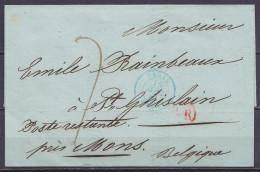 Monsieur
Emile Rainbeaux
à St Ghislain
Poste restante
près Mons.
Belgique